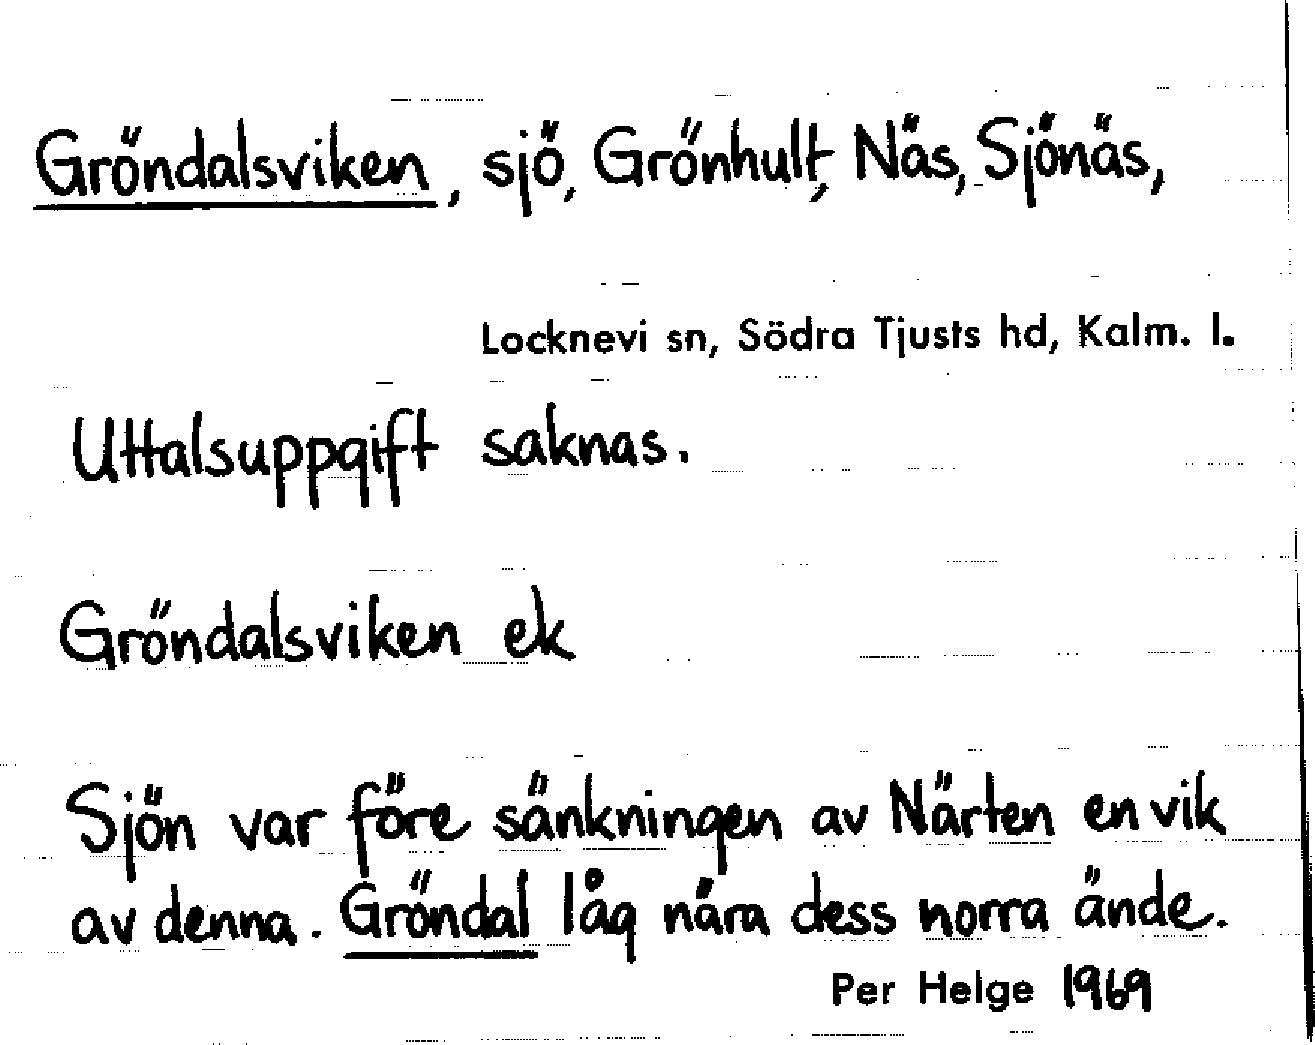 Gröndalsviken, sjö, Grönhult, Näs, Sjönäs,
Locknevi sn, Södra Tjusts hd, Kalm. l.
Uttalsuppgift saknas.
Gröndalsviken ek
Sjön var före sänkningen av Närten en vik
av denna. Gröndal låg nära dess norra ände.
Per Helge 1969